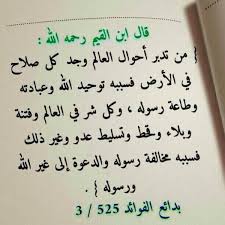 قال ابن القيم رحمه الله :
{ من تدبر أحوال العالم وجد كل صلاح
في الأرض فسببه توحيد الله وعبادته
وطاعة رسوله ، وكل شر في العالم وفتنة
وبلاء وقحط وتسليط عدو وغير ذلك
فسببه مخالفة رسوله والدعوة إلى غير الله
ورسوله } .
بدائع الفوائد 525 / 3